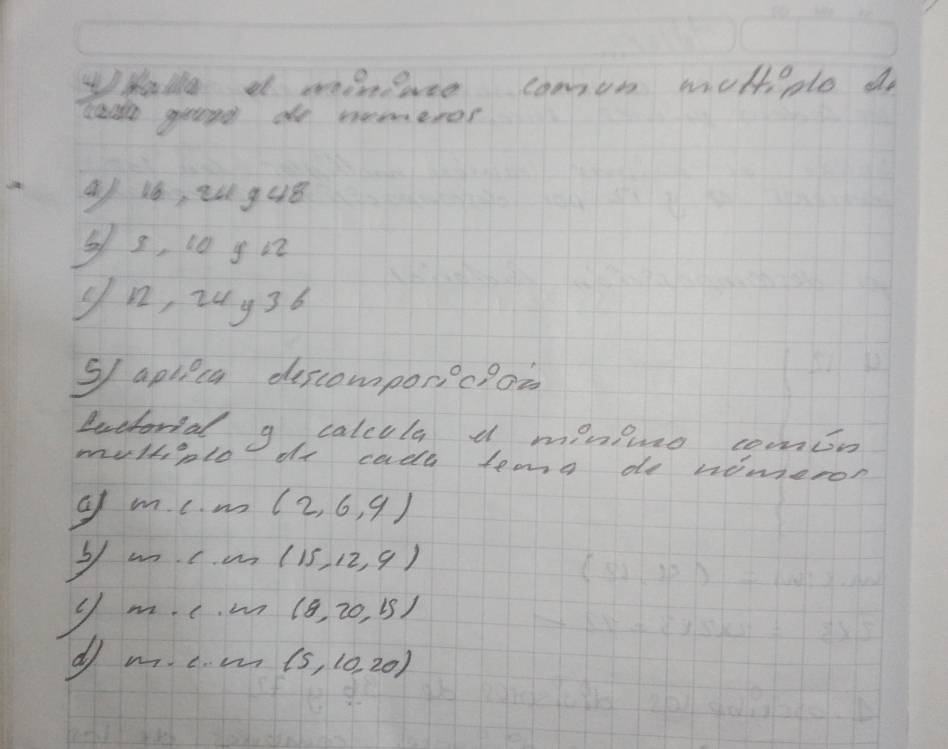 4) Halla el minimo comun multiplo de
cada grupo de numeros
a) 16, 24 y 48
b) 8, 10 y 12
c) 12, 24 y 36
5) aplica descomposición
factorial y calcula el minimo común
multiplo de cada terna de números
a) m.c.m (2,6,9)
b) m.c.m (15,12,9)
c) m.c.m (8,20,15)
d) m.c.m (5,10,20)